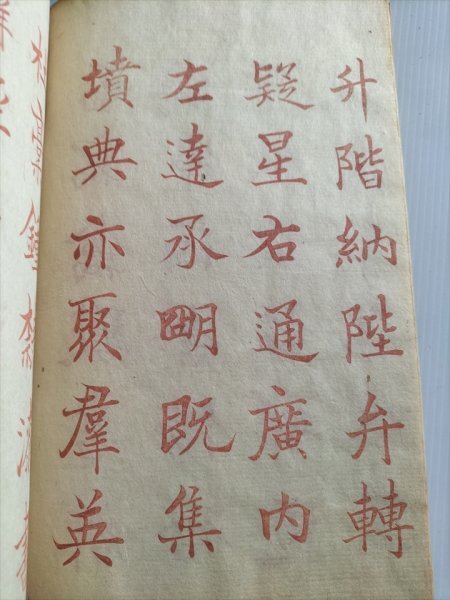 升階納陛弁轉
疑星右通廣内
左達承朙既集
墳典亦聚羣英